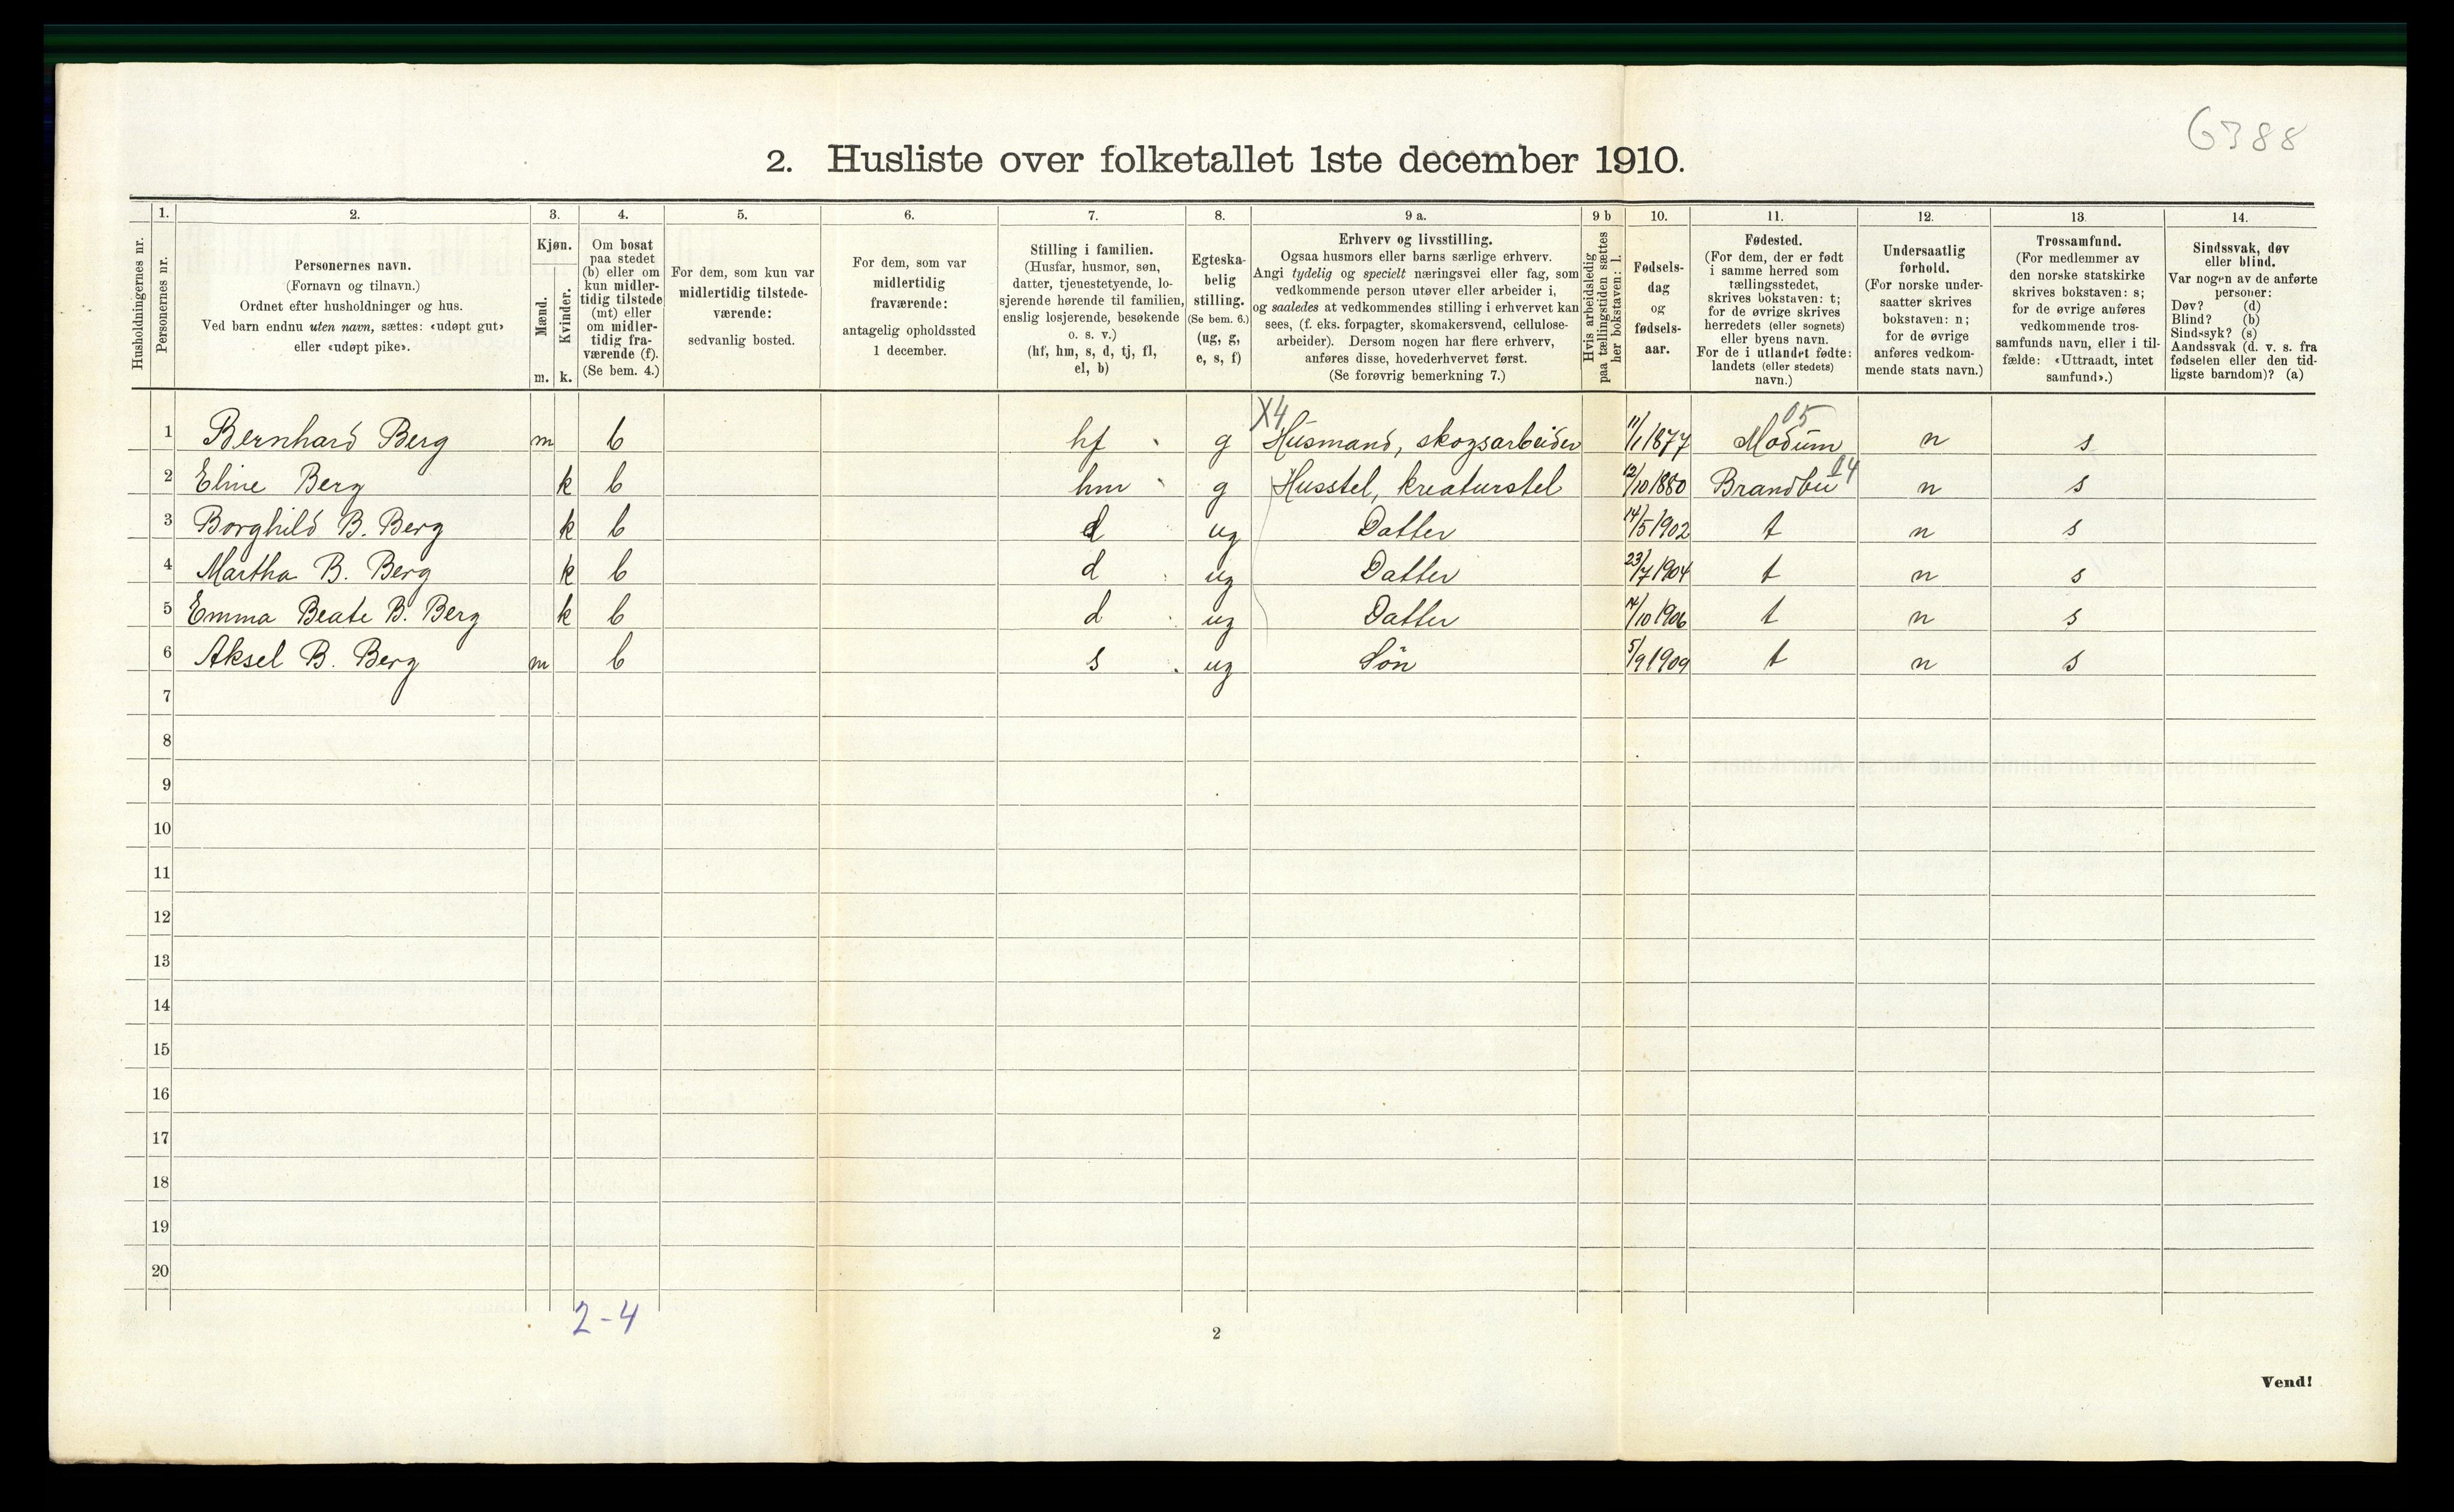 6388
2. Husliste over folketallet 1ste december 1910.
1. 2. 3. 4. 5. 6. 7. 8. 9 a. 9 b 10. 11. 12. 13. 14.
Husholdningernes nr.
Personernes nr.
Personernes navn.
(Fornavn og tilnavn.)
Ordnet efter husholdninger og hus.
Ved barn endnu uten navn, sættes: «udøpt gut»
eller «udøpt pike».
Kjøn.
Mænd.
Kvinder.
m. k.
Om bosat
paa stedet
(b) eller om
kun midler-
tidig tilstede
(mt) eller
om midler-
tidig fra-
værende (f).
(Se bem. 4.)
For dem, som kun var
midlertidig tilstede-
værende:
sedvanlig bosted.
For dem, som var
midlertidig
fraværende:
antagelig opholdssted
1 december.
Stilling i familien.
(Husfar, husmor, søn,
datter, tjenestetyende, lo-
sjerende hørende til familien,
enslig losjerende, besøkende
o. s. v.)
(hf, hm, s, d, tj, fl,
el, b)
Egteska-
belig
stilling.
(Se bem. 6.)
(ug, g,
e, s, f)
Erhverv og livsstilling.
Ogsaa husmors eller barns særlige erhverv.
Angi tydelig og specielt næringsvei eller fag, som
vedkommende person utøver eller arbeider i,
og saaledes at vedkommendes stilling i erhvervet kan
sees, (f. eks. forpagter, skomakersvend, cellulose-
arbeider). Dersom nogen har flere erhverv,
anføres disse, hovederhvervet først.
(Se forøvrig bemerkning 7.)
Hvis arbeidsledig
paa tællingstiden sættes
her bokstaven: l.
Fødsels-
dag
og
fødsels-
aar.
Fødested.
(For dem, der er født
i samme herred som
tællingsstedet,
skrives bokstaven: t;
for de øvrige skrives
herredets (eller sognets)
eller byens navn.
For de i utlandet fødte:
landets (eller stedets)
navn.)
Undersaatlig
forhold.
(For norske under-
saatter skrives
bokstaven: n;
for de øvrige
anføres vedkom-
mende stats navn.)
Trossamfund.
(For medlemmer av
den norske statskirke
skrives bokstaven: s;
for de øvrige anføres
vedkommende tros-
samfunds navn, eller i til-
fælde: «Uttraadt, intet
samfund».)
Sindssvak, døv
eller blind.
Var nogen av de anførte
personer:
Døv? (d)
Blind? (b)
Sindssyk? (s)
Aandssvak (d. v. s. fra
fødselen eller den tid-
ligste barndom)? (a)
X4 05
1 Bernhard Berg m b hf g Husmand, skogsarbeider 11/1 1877 Modum n s
04
2 Eline Berg k b hm g Husstel, kreaturstel 12/10 1880 Brandbu n s
3 Borghild B. Berg k b d ug Datter 14/5 1902 t n s
4 Martha B. Berg k b d ug Datter 23/7 1904 t n s
5 Emma Beate B. Berg k b d ug Datter 14/10 1906 t n s
6 Aksel B. Berg m b s ug Sön 5/9 1909 t n s
7
8
9
10
11
12
13
14
15
16
17
18
19
20
2-4
2
Vend!